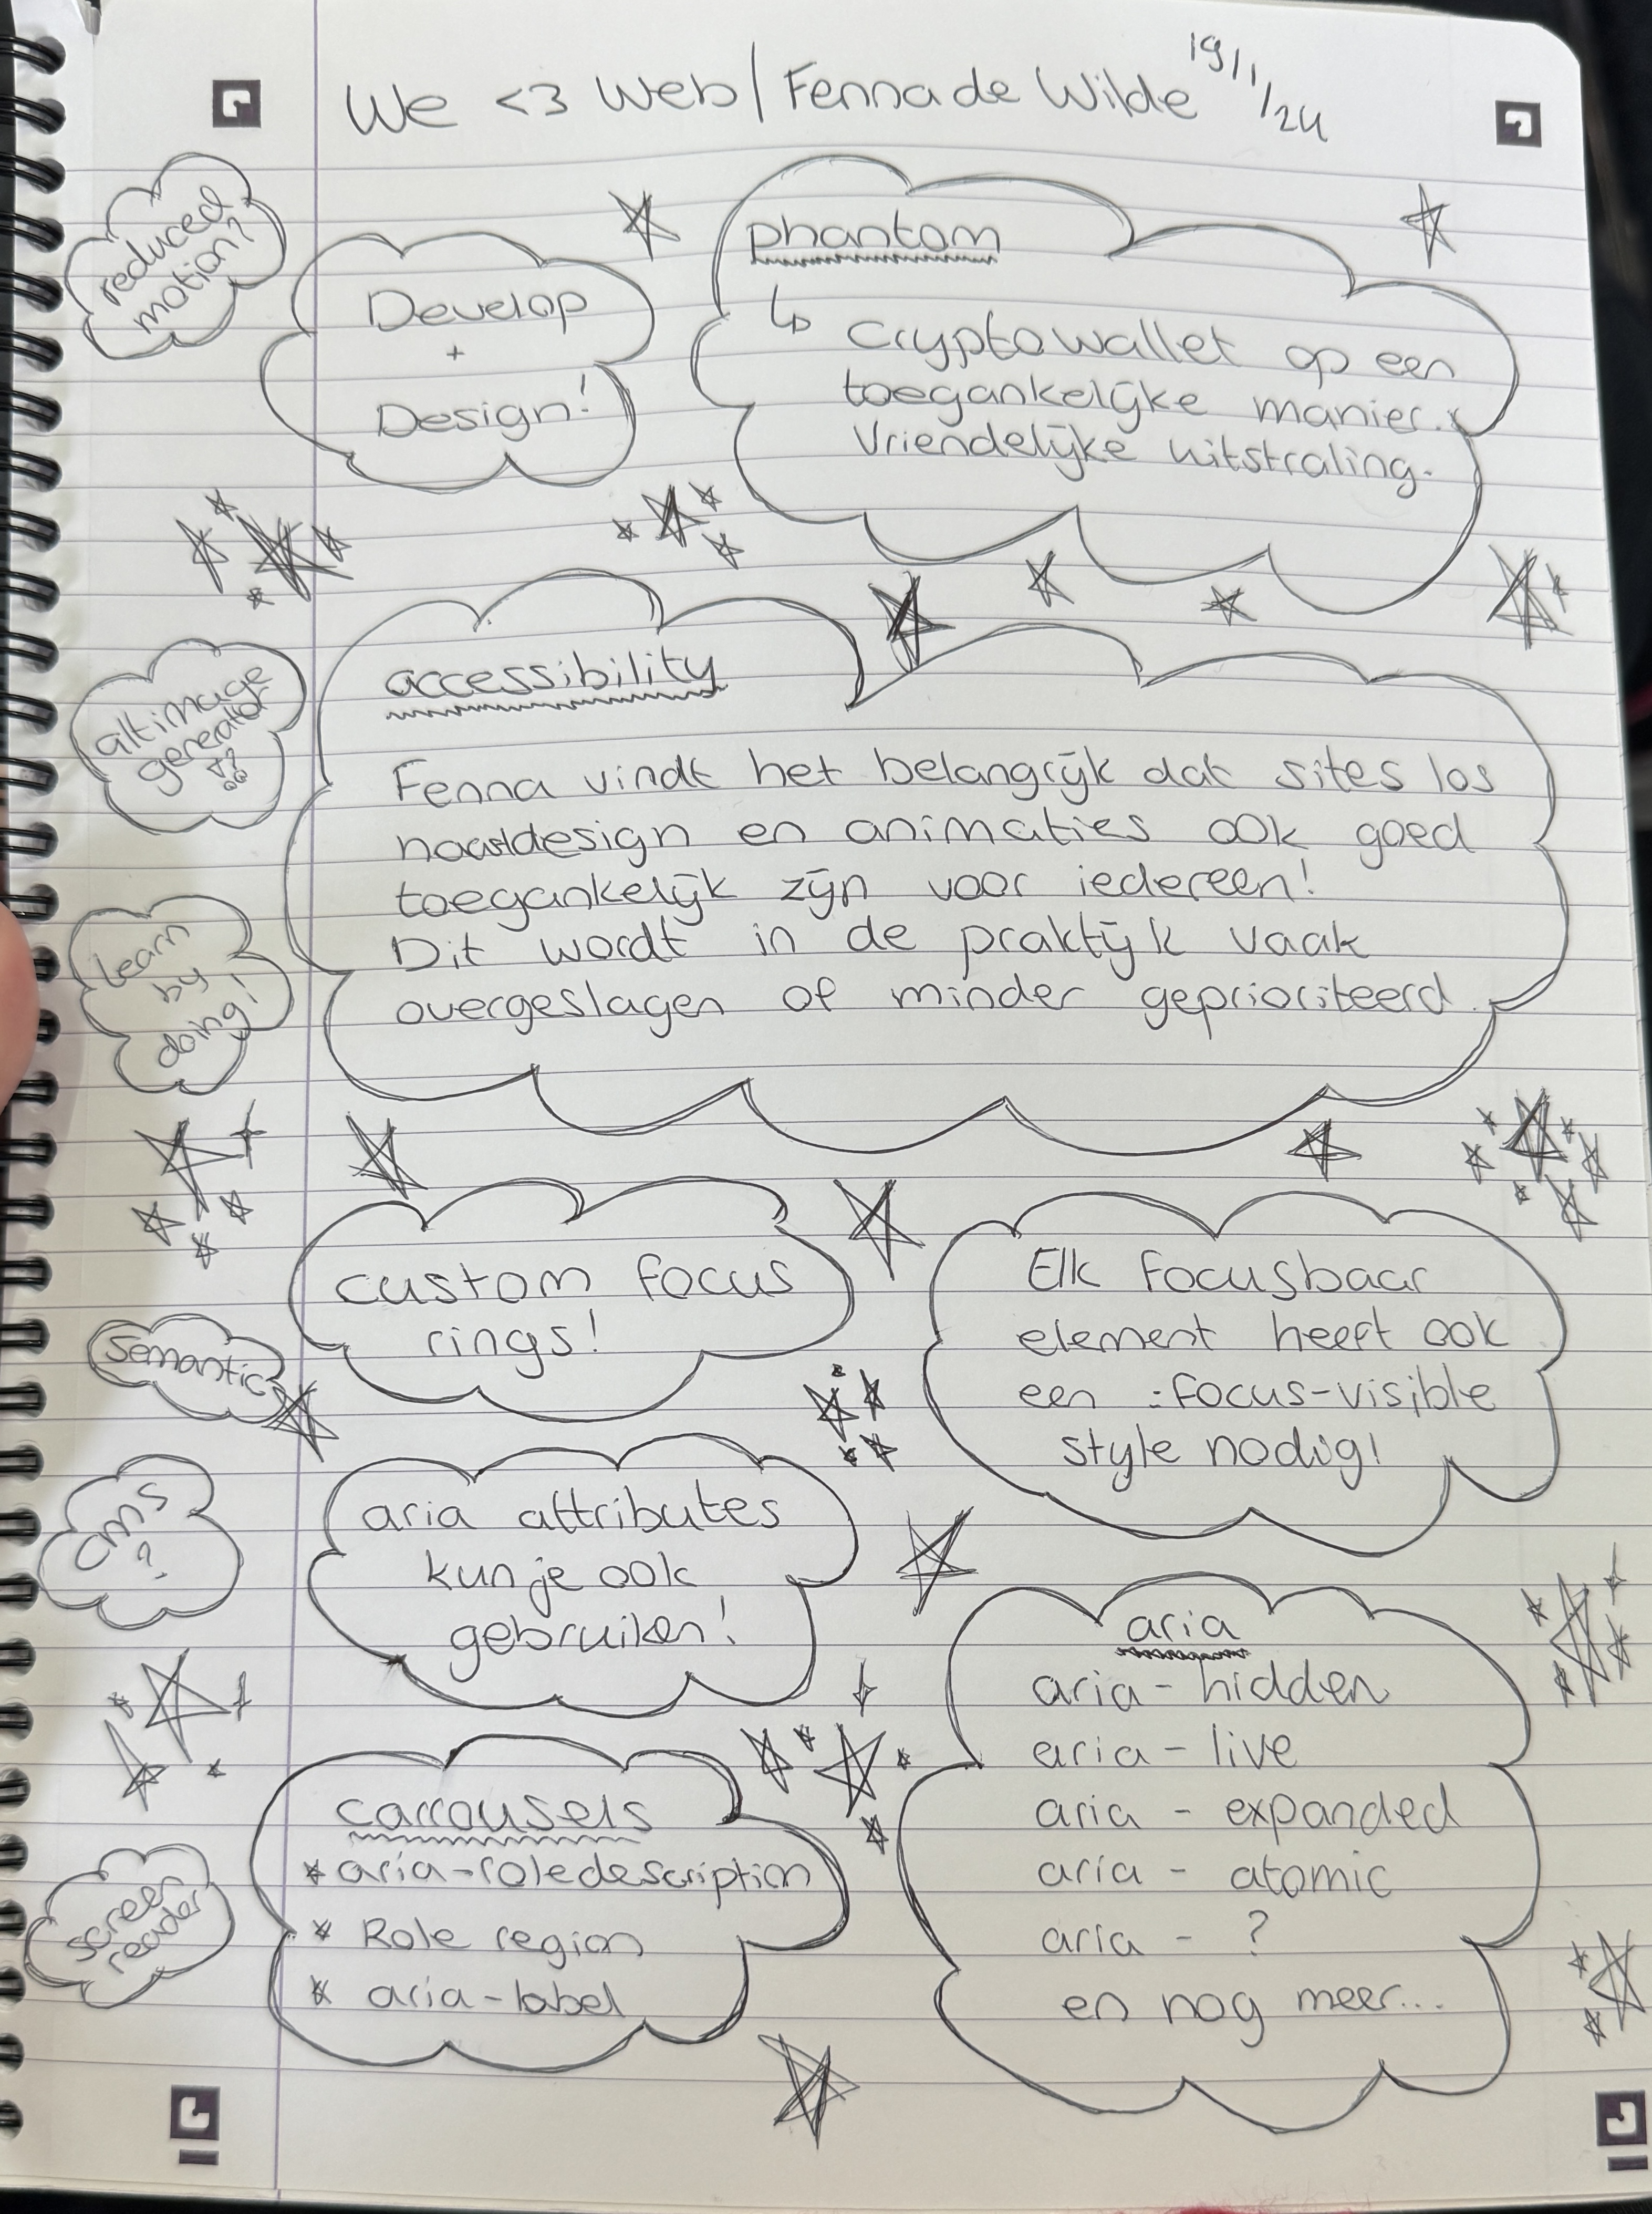 We <3 Web / Fenna de Wilde 19/1/24
reduced
motion?
Develop
+
Design!
phantom
↳ Cryptowallet op een
toegankelijke manier.
Vriendelijke uitstraling.
alt image
generator
!?
accessibility
Fenna vindt het belangrijk dat sites los
naast design en animaties ook goed
toegankelijk zijn voor iedereen!
Dit wordt in de praktijk vaak
overgeslagen of minder geprioriteerd.
learn
by
doing!
custom focus
rings!
Elk focusbaar
element heeft ook
een :focus-visible
style nodig!
semantic
aria attributes
kun je ook
gebruiken!
cms
?
aria
aria - hidden
aria - live
aria - expanded
aria - atomic
aria - ?
en nog meer...
carrousels
* aria-roledescription
* Role region
* aria-label
screen
reader